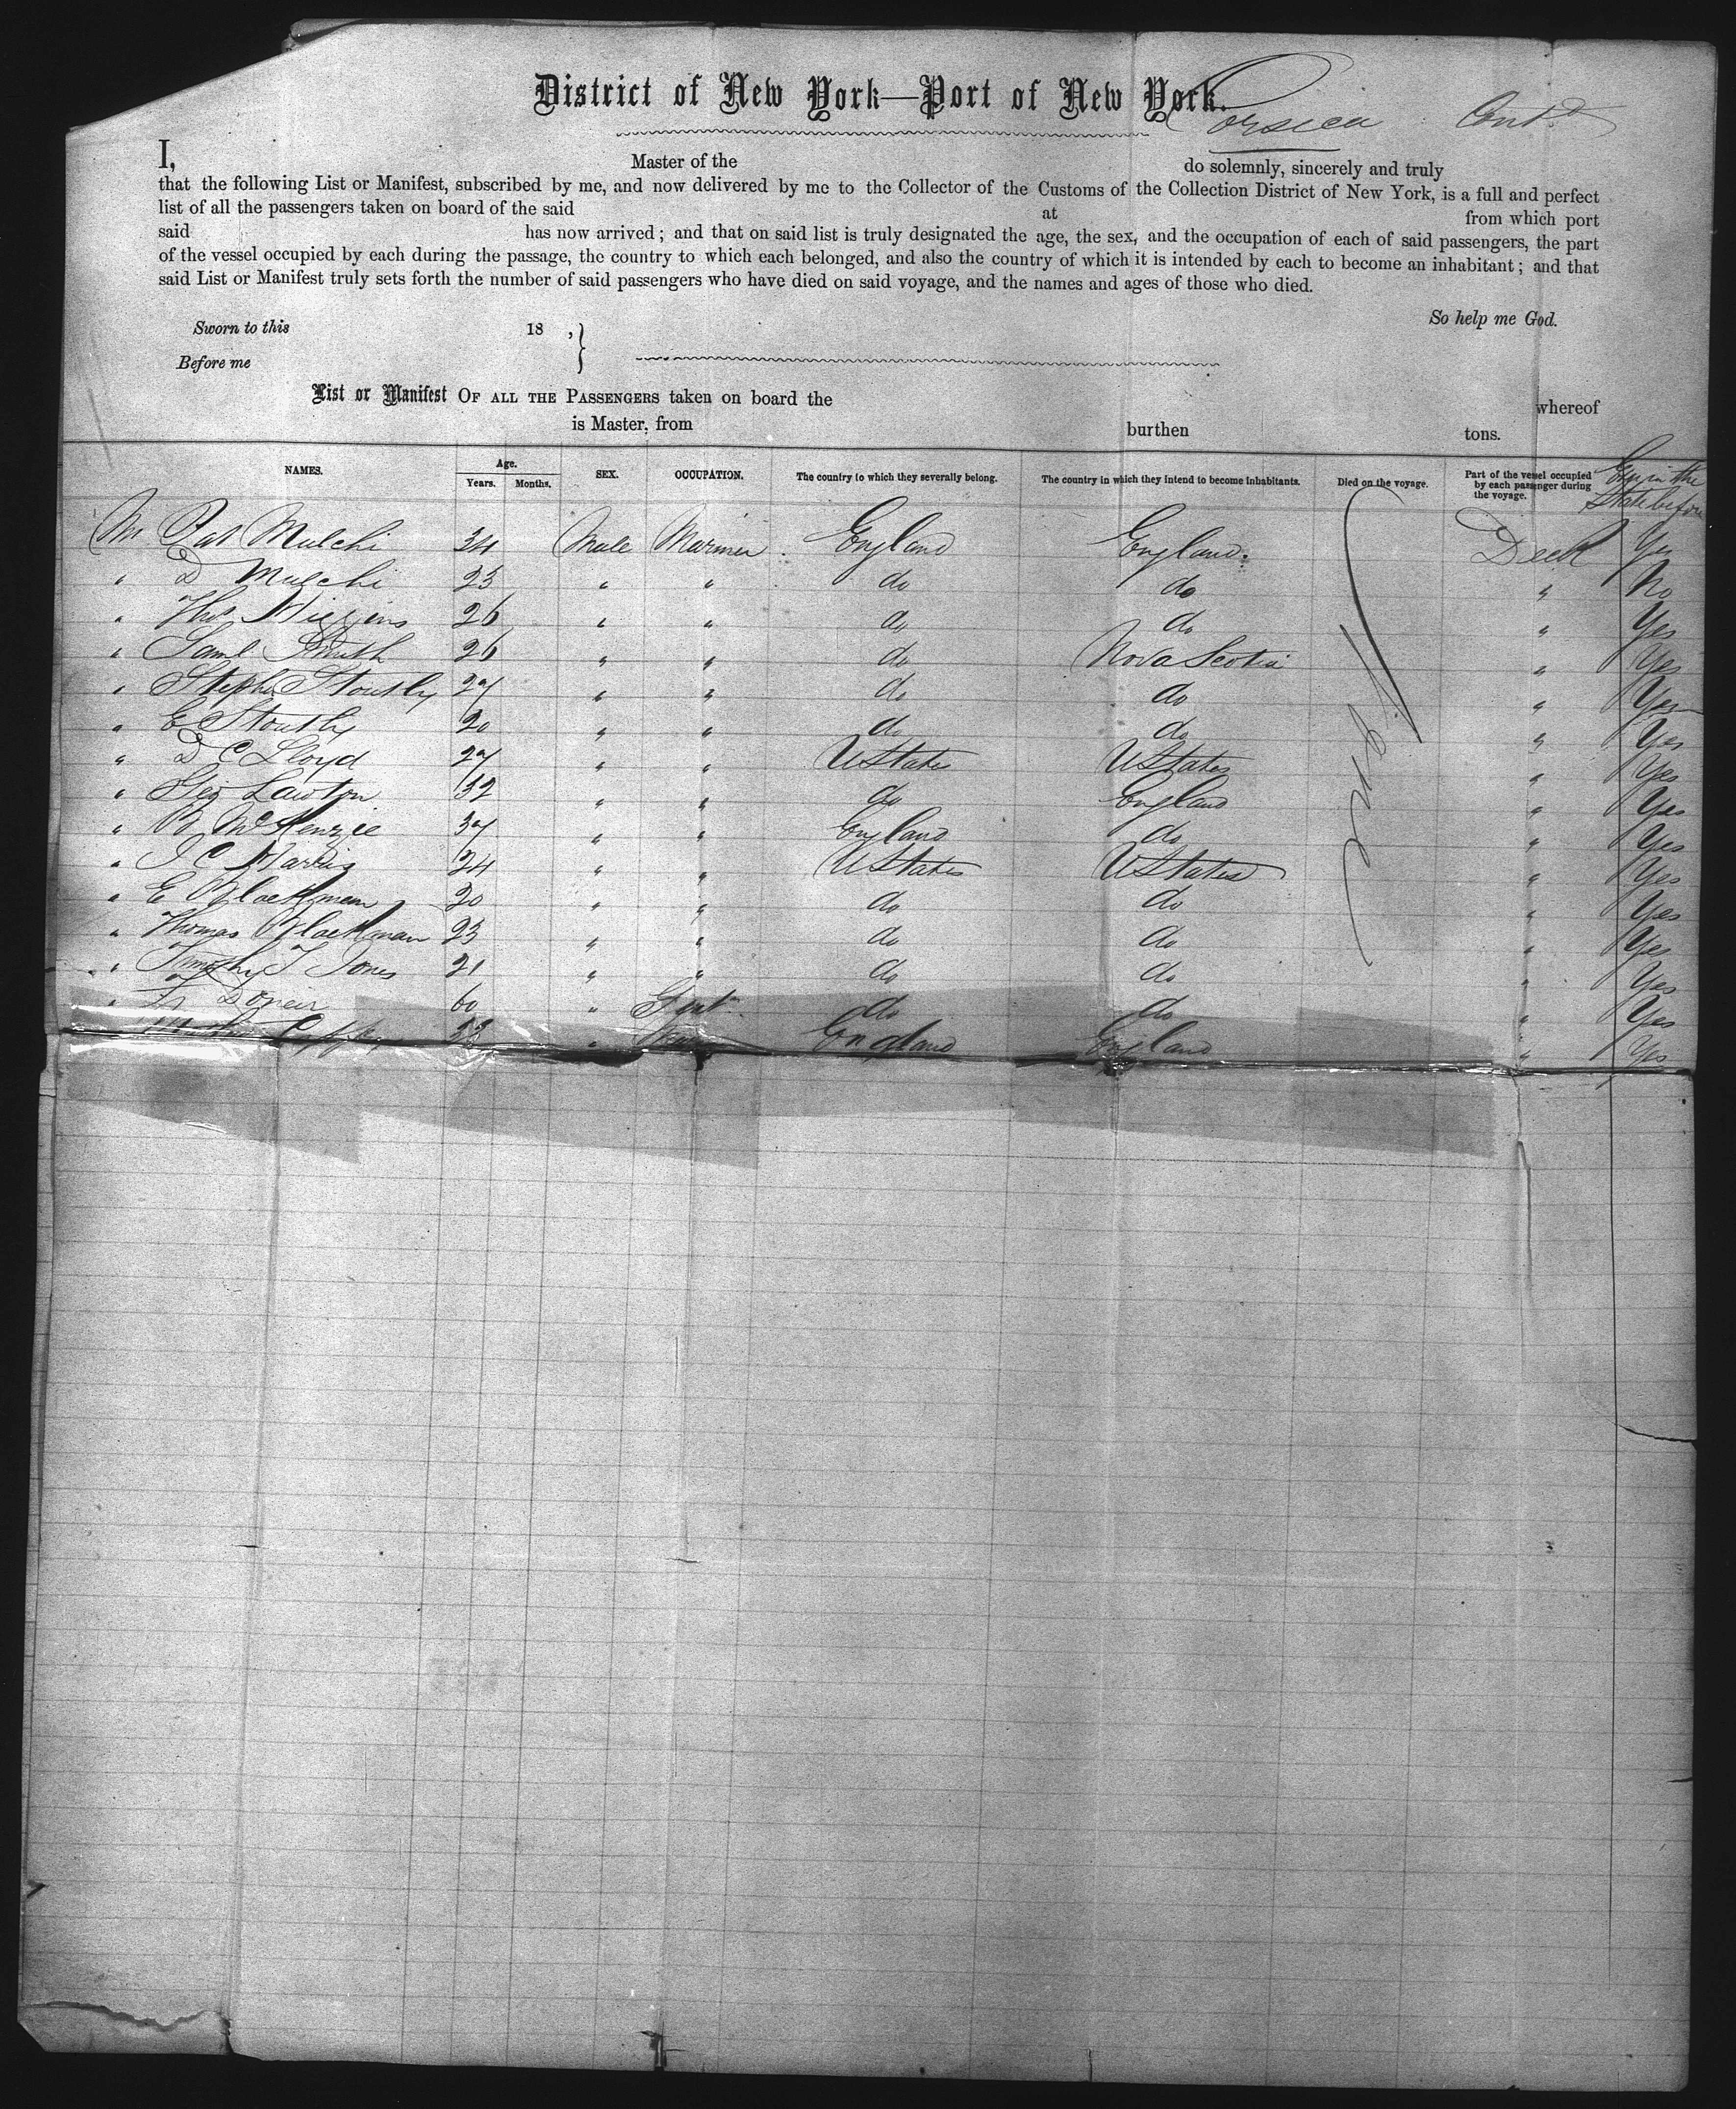 District of New York—Port of New York.
Corsica Cont.d
I, Master of the do solemnly, sincerely and truly
that the following List or Manifest, subscribed by me, and now delivered by me to the Collector of the Customs of the Collection District of New York, is a full and perfect
list of all the passengers taken on board of the said at from which port
said has now arrived; and that on said list is truly designated the age, the sex, and the occupation of each of said passengers, the part
of the vessel occupied by each during the passage, the country to which each belonged, and also the country of which it is intended by each to become an inhabitant; and that
said List or Manifest truly sets forth the number of said passengers who have died on said voyage, and the names and ages of those who died.
So help me God.
Sworn to this 18 ,
Before me
List or Manifest OF ALL THE PASSENGERS taken on board the whereof
is Master, from burthen tons.
NAMES. Age. Years. Months. SEX. OCCUPATION. The country to which they severally belong. The country in which they intend to become inhabitants. Died on the voyage. Part of the vessel occupied by each passenger during the voyage. Ever in the State before
Mr Pat Mulchi 34 Male Mariner England England. Deck Yes
" D Mulchi 23 " " do do " No
" Thos Wiggins 26 " " do do " Yes
" Saml Smith 26 " " do Nova Scotia " Yes
" Stephn Stoutly 27 " " do do " Yes
" E Stoutly 20 " " do do " Yes
" D C Lloyd 27 " " U States U States " Yes
" Geo Lawton 32 " " do England " Yes
" B McKenzie 37 " " England do " Yes
" J C Harris 24 " " U States U States " Yes
" E Blackman 20 " " do do " Yes
" Thomas Blackman 23 " " do do " Yes
" Timothy T Jones 21 " " do do " Yes
" 60 " Gent do do " Yes
33 " England England " Yes
None